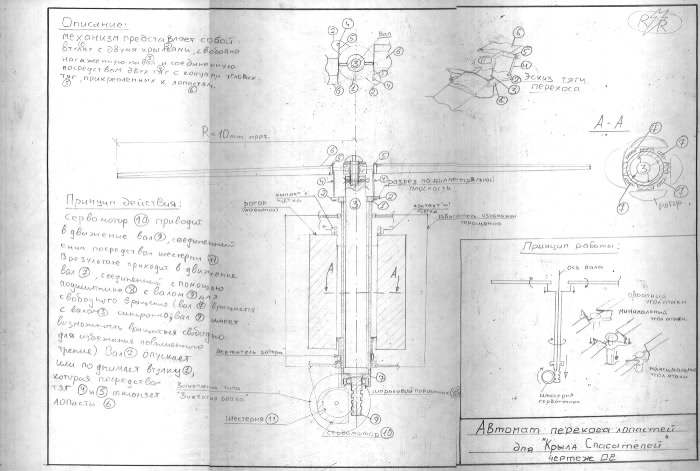 Описание:
механизм представляет собой
втулку с двумя крыльями, свободно
насаженную на вал и соединенную
посредством двух тяг с концами угловых
тяг, прикрепленных к лопастям.
Принцип действия:
Сервомотор 10 приводит
в движение вал 9, соединенный
с ним посредством шестерни 11
В результате приходит в движение
вал 7, соединенный с помощью
подшипника 8 с валом 9 для
свободного вращения (вал 7 вращается
с валом 3 синхронно, вал 9 имеет
возможность вращаться свободно
для избежания повышенного
трения) Вал 7 опускает
или поднимает втулку 2,
которая посредством
тяг 4 и 5 отклоняет
лопасти 6
R = 10 мм
вал
Эскиз тяги
перекоса
А - А
ротор
разрез по диаметральной
плоскости
ротор
контакт "+"
щетка
двигатель изображен
упрощенно
А
А
держатель ротора
Зацепление типа
"Винтовая резка"
Шестерня 11
сервомотор 10
шариковый подшипник
Принцип работы:
ось вала
обратный
угол атаки
минимальный
угол атаки
максимальный
угол атаки
Шестерня
сервомотора
Автомат перекоса лопастей
для "Крыла Спасателей"
чертеж 02